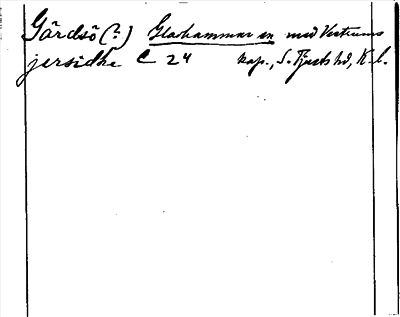 Gårdsö (?) Gladhammar sn med Västrums
jersidhe C 24 kap., S. Tjust hd, K. l.